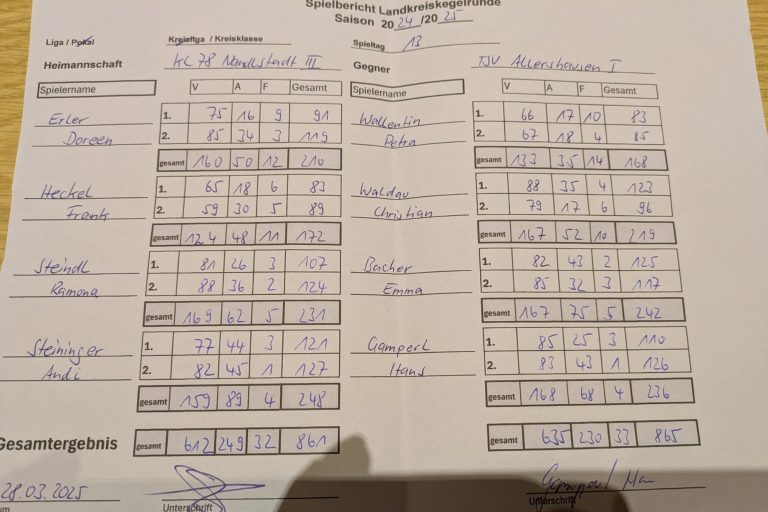 Spielbericht Landkreiskegelrunde
Saison 2024/2025
Liga / Pokal Kreisliga / Kreisklasse Spieltag 13
Heimannschaft KC 78 Nandlstadt III Gegner TSV Allershausen I
Spielername V A F Gesamt Spielername V A F Gesamt
Erler 1. 75 16 9 91 Wallentin 1. 66 17 10 83
Doreen 2. 85 34 3 119 Petra 2. 67 18 4 85
gesamt 160 50 12 210 gesamt 133 35 14 168
Heckel 1. 65 18 6 83 Waldau 1. 88 35 4 123
Frank 2. 59 30 5 89 Christian 2. 79 17 6 96
gesamt 124 48 11 172 gesamt 167 52 10 219
Steindl 1. 81 26 3 107 Bacher 1. 82 43 2 125
Ramona 2. 88 36 2 124 Emma 2. 85 32 3 117
gesamt 169 62 5 231 gesamt 167 75 5 242
Steininger 1. 77 44 3 121 Gamperl 1. 85 25 3 110
Andi 2. 82 45 1 127 Hans 2. 83 43 1 126
gesamt 159 89 4 248 gesamt 168 68 4 236
Gesamtergebnis gesamt 612 249 32 861 gesamt 635 230 33 865
28.03.2025
Unterschrift Unterschrift